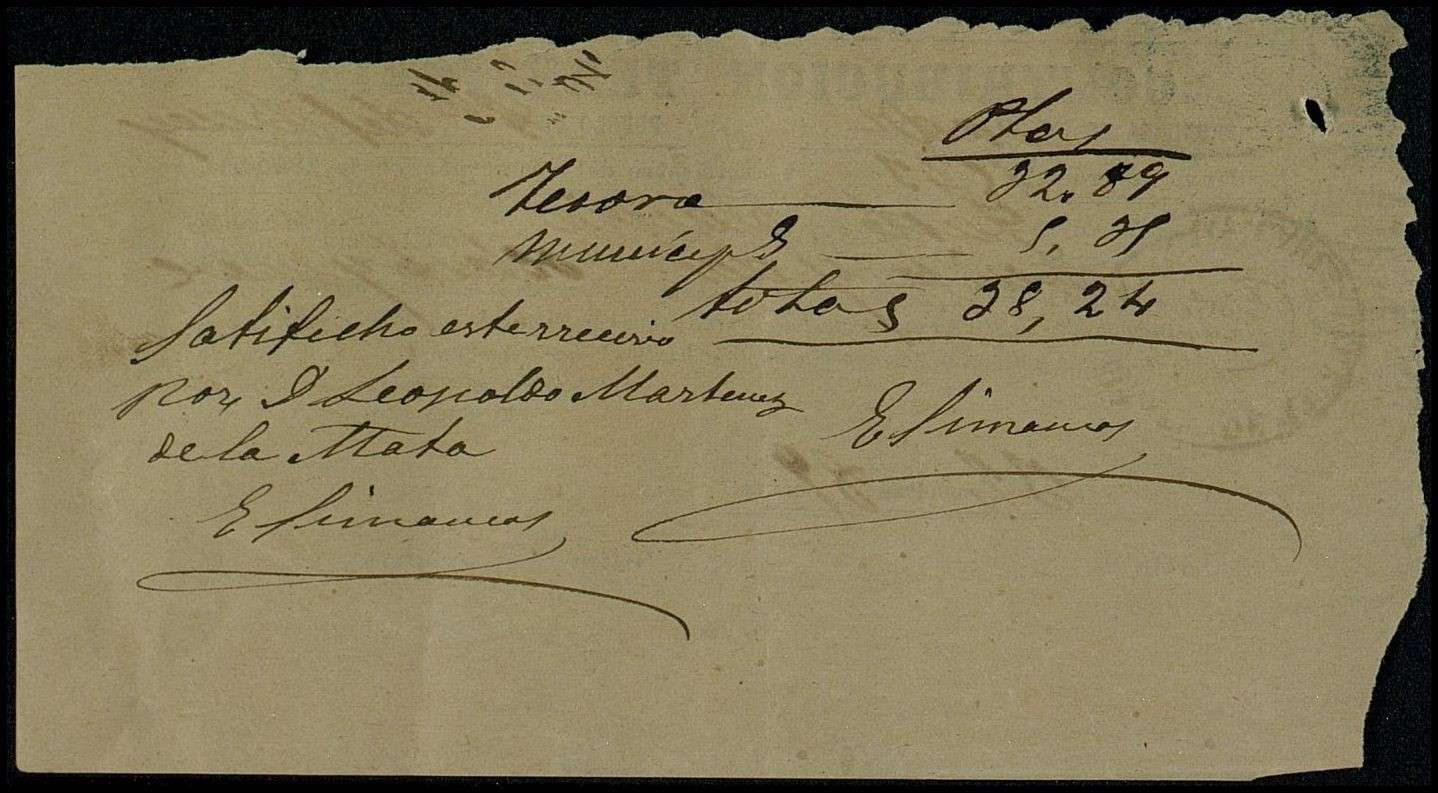 Ptas
Tesoro 32.89
Municipl 5,35
total 38,24
Satifecho este rrecivo
por D Leopoldo Martinez
de la Mata
E Simancas
E Simancas